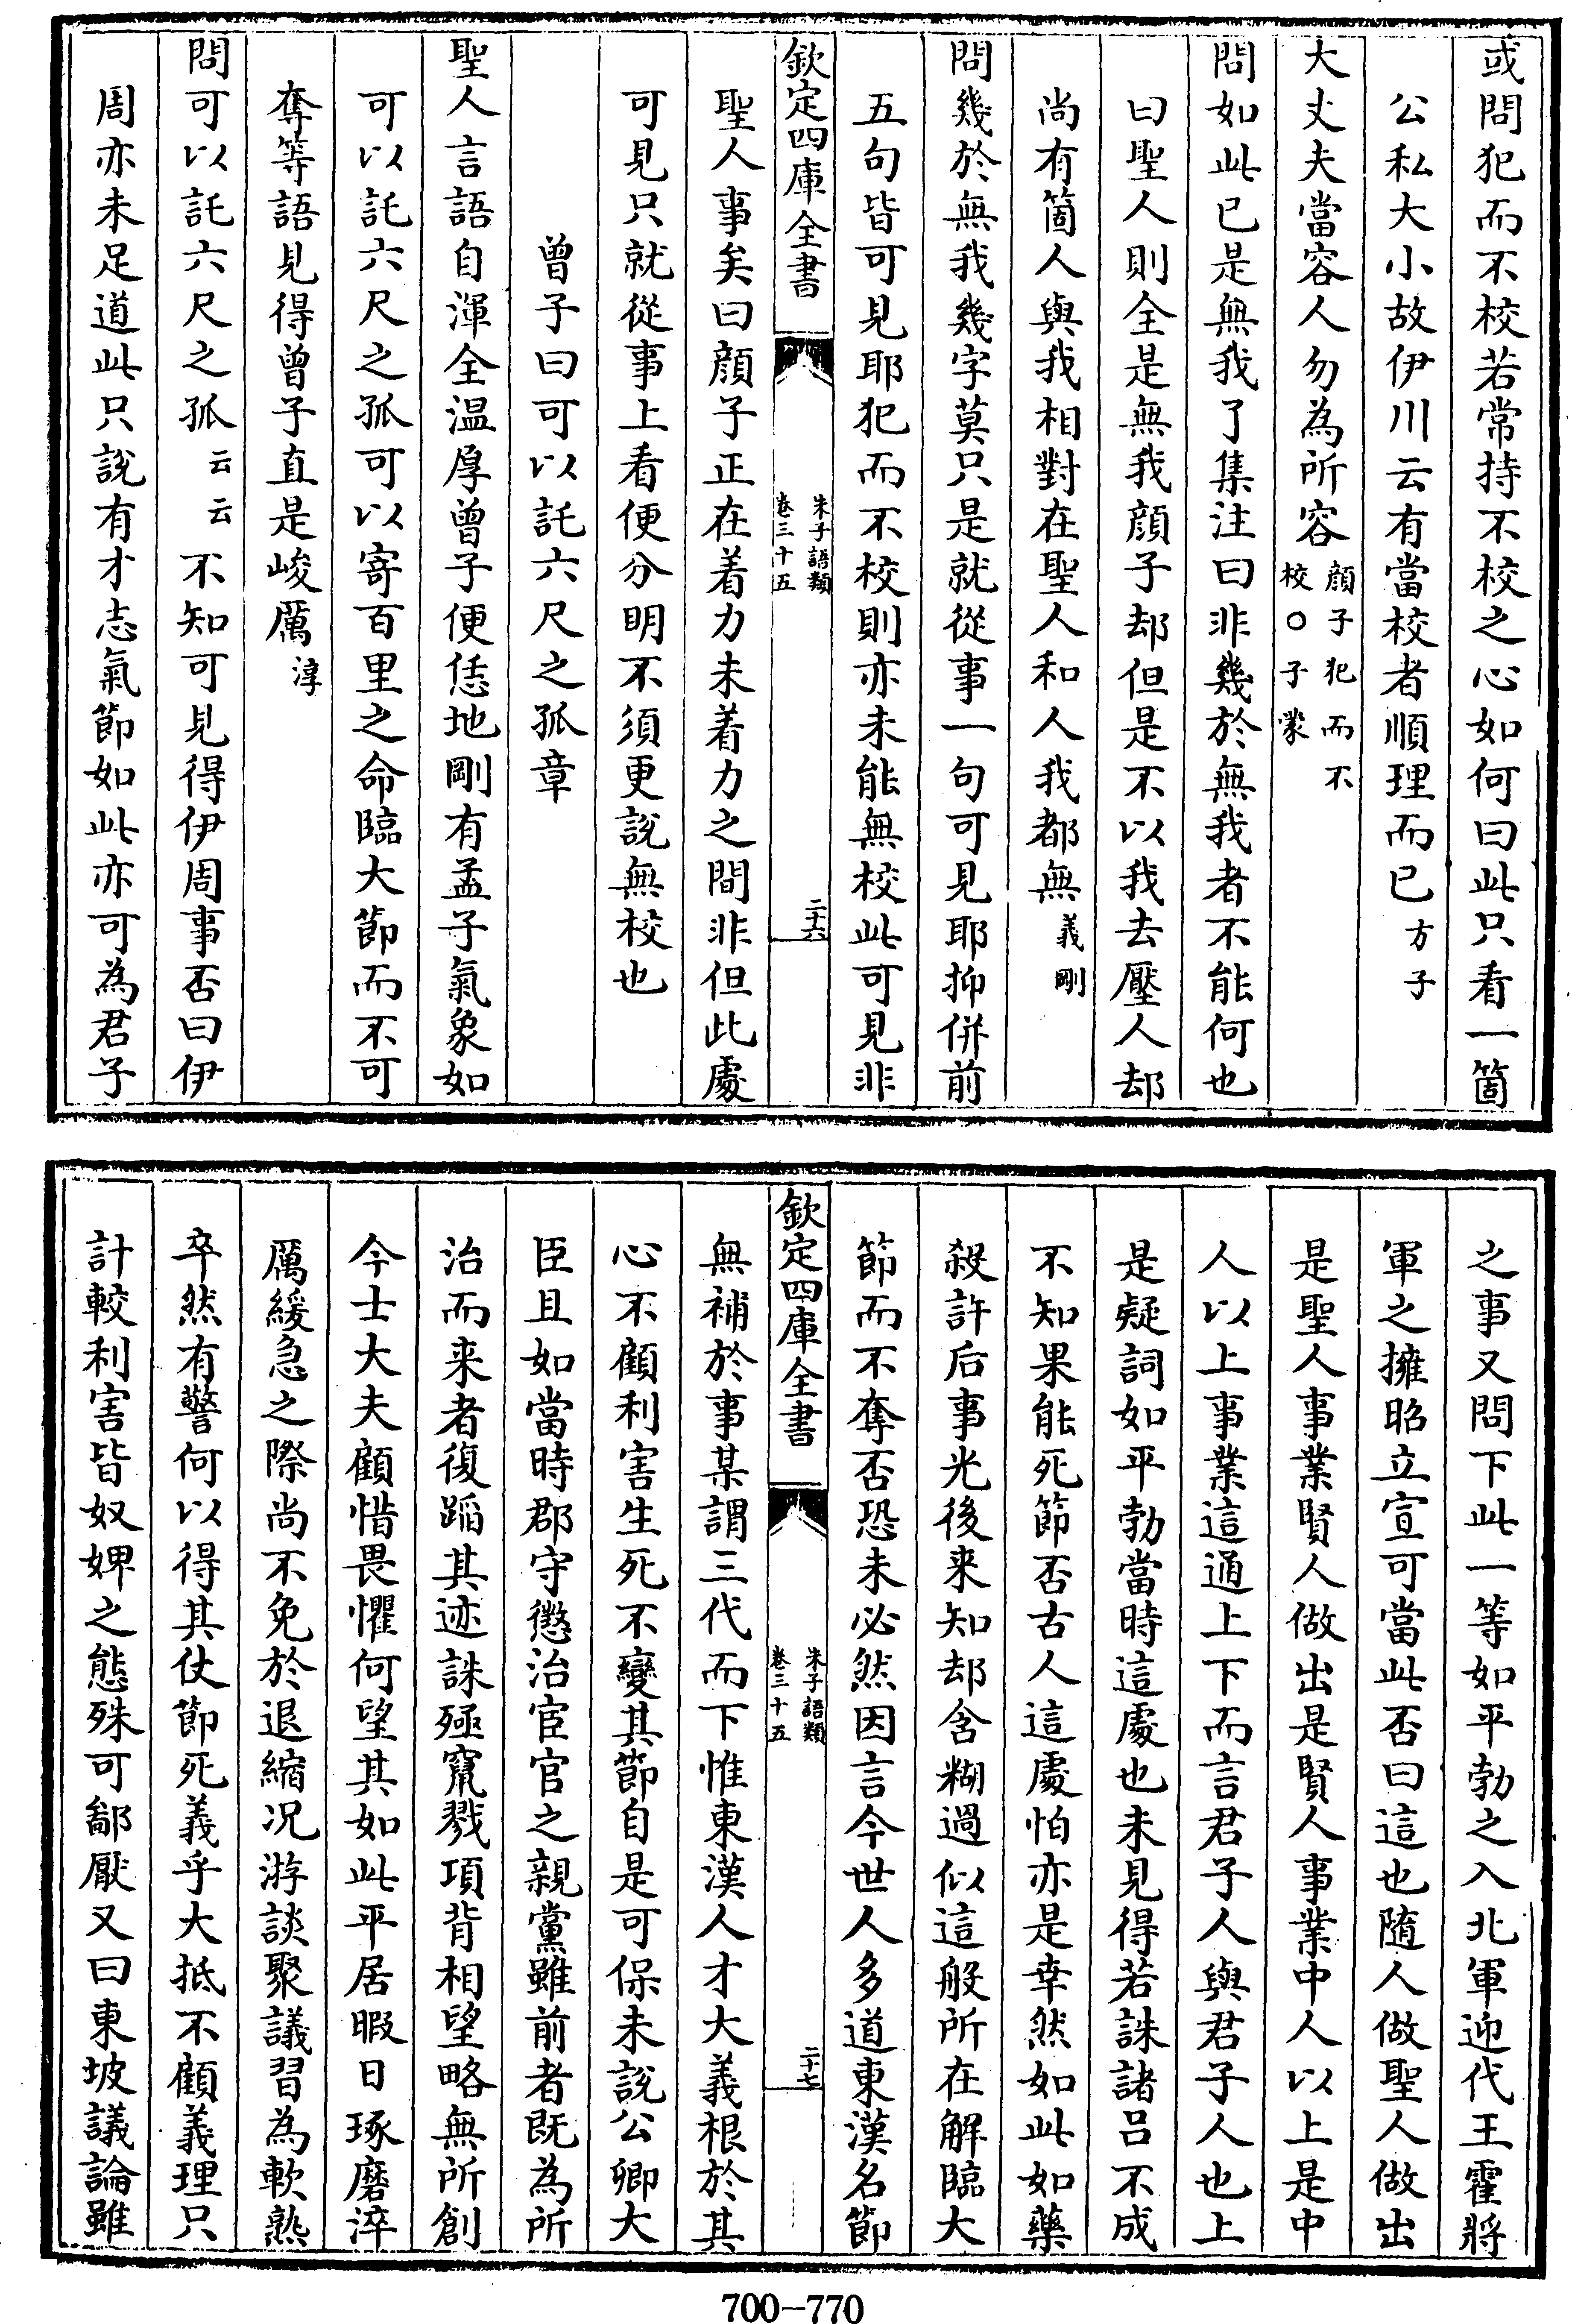 或問犯而不校若常持不校之心如何曰此只看一箇
公私大小故伊川云有當校者順理而已方子
大丈夫當容人勿為所容顔子犯而不校○子蒙
問如此已是無我了集注曰非幾於無我者不能何也
曰聖人則全是無我顔子却但是不以我去壓人却
尚有箇人與我相對在聖人和人我都無義剛
問幾於無我幾字莫只是就從事一句可見耶抑併前
五句皆可見耶犯而不校則亦未能無校此可見非
欽定四庫全書 朱子語類卷三十五 二十六
聖人事矣曰顔子正在着力未着力之間非但此處
可見只就從事上看便分明不須更說無校也
曾子曰可以託六尺之孤章
聖人言語自渾全温厚曾子便恁地剛有孟子氣象如
可以託六尺之孤可以寄百里之命臨大節而不可
奪等語見得曾子直是峻厲淳
問可以託六尺之孤云云不知可見得伊周事否曰伊
周亦未足道此只說有才志氣節如此亦可為君子
之事又問下此一等如平勃之入北軍迎代王霍將
軍之擁昭立宣可當此否曰這也隨人做聖人做出
是聖人事業賢人做出是賢人事業中人以上是中
人以上事業這通上下而言君子人與君子人也上
是疑詞如平勃當時這處也未見得若誅諸吕不成
不知果能死節否古人這處怕亦是幸然如此如藥
殺許后事光後来知却含糊過似這般所在解臨大
節而不奪否恐未必然因言今世人多道東漢名節
欽定四庫全書 朱子語類卷三十五 二十七
無補於事某謂三代而下惟東漢人才大義根於其
心不顧利害生死不變其節自是可保未說公卿大
臣且如當時郡守懲治宦官之親黨雖前者既為所
治而来者復蹈其迹誅殛竄戮項背相望略無所創
今士大夫顧惜畏懼何望其如此平居暇日琢磨淬
厲緩急之際尚不免於退縮况游談聚議習為軟熟
卒然有警何以得其仗節死義乎大抵不顧義理只
計較利害皆奴婢之態殊可鄙厭又曰東坡議論雖
700-770